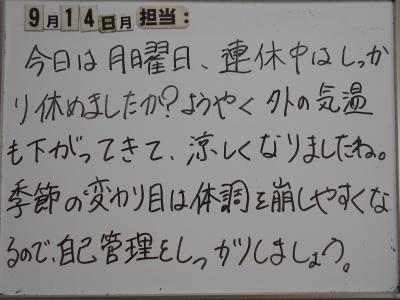 9月14日月担当:
今日は月曜日、連休中はしっか
り休めましたか?ようやく外の気温
も下がってきて、涼しくなりましたね。
季節の変わり目は体調を崩しやすくな
るので、自己管理をしっかりしましょう。